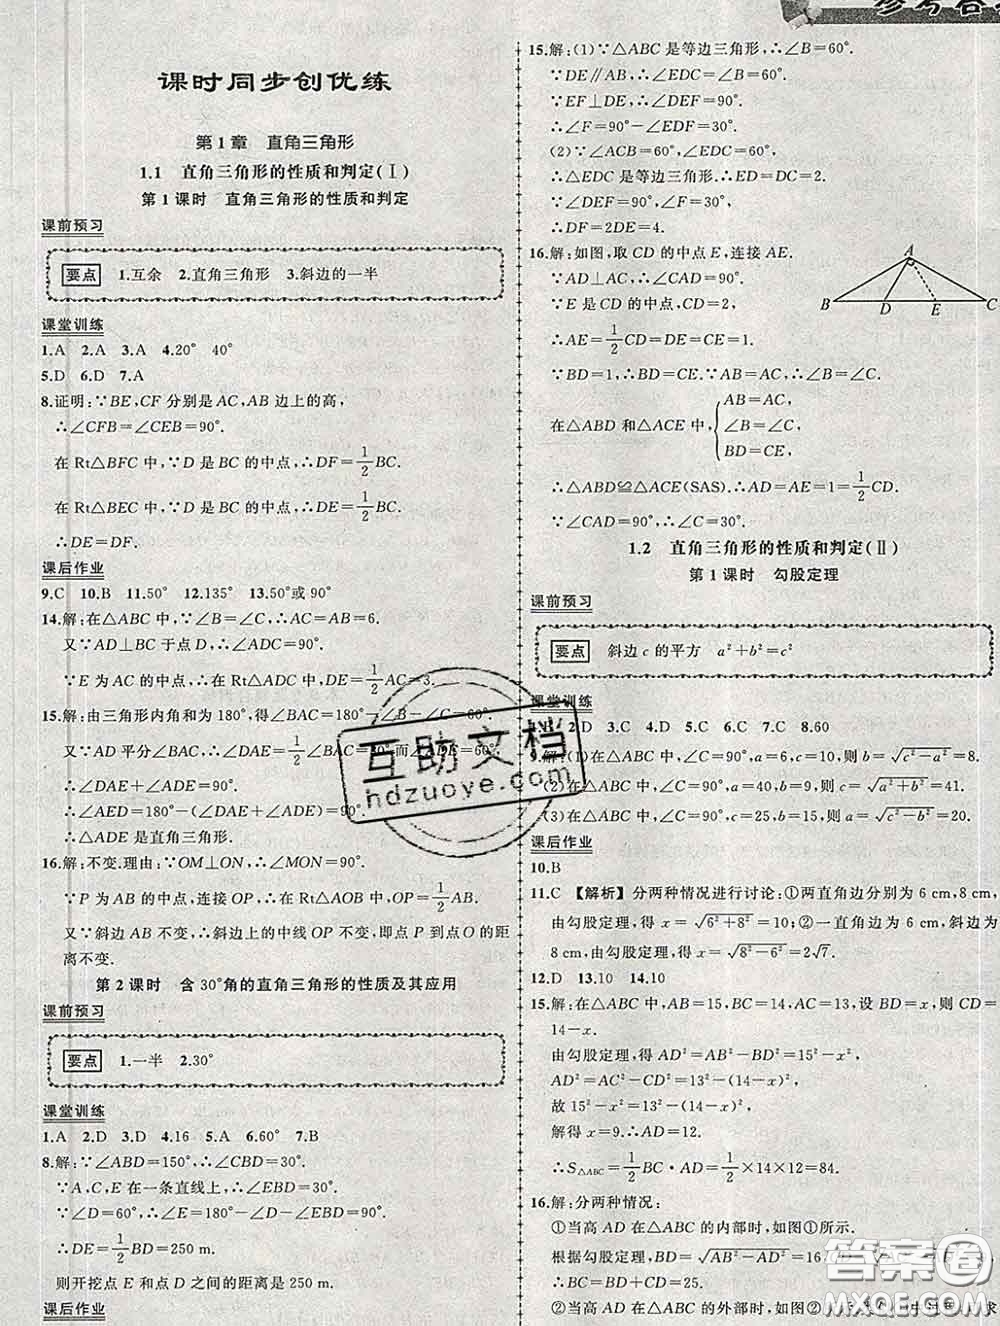 参考答案
课时同步创优练
第1章 直角三角形
1.1 直角三角形的性质和判定(Ⅰ)
第1课时 直角三角形的性质和判定
课前预习
要点 1.互余 2.直角三角形 3.斜边的一半
课堂训练
1.A 2.A 3.A 4.20° 40°
5.D 6.D 7.A
8.证明:∵BE,CF 分别是 AC,AB 边上的高,
∴∠CFB=∠CEB=90°.
在 Rt△BFC 中,∵D 是 BC 的中点,∴DF=1/2BC.
在 Rt△BEC 中,∵D 是 BC 的中点,∴DE=1/2BC.
∴DE=DF.
课后作业
9.C 10.B 11.50° 12.135° 13.50°或 90°
14.解:在△ABC 中,∵∠B=∠C,∴AB=AC=6.
又∵AD⊥BC 于点 D,∴∠ADC=90°.
∵E 为 AC 的中点,∴在 Rt△ADC 中,DE=1/2AC=3.
15.解:由三角形内角和为 180°,得∠BAC=180°-∠B-∠C=60°.
又∵AD 平分∠BAC,∴∠DAE=1/2∠BAC=30°,而∠ADE=60°,
∴∠DAE+∠ADE=90°.
∴∠AED=180°-(∠DAE+∠ADE)=90°.
∴△ADE 是直角三角形.
16.解:不变.理由:∵OM⊥ON,∴∠MON=90°.
∵P 为 AB 的中点,连接 OP,∴在 Rt△AOB 中,OP=1/2AB
又∵斜边 AB 不变,∴斜边上的中线 OP 不变,即点 P 到点 O 的距
离不变.
第2课时 含 30°角的直角三角形的性质及其应用
课前预习
要点 1.一半 2.30°
课堂训练
1.A 2.D 3.D 4.16 5.A 6.60° 7.B
8.解:∵∠ABD=150°,∴∠CBD=30°.
∵A,C,E 在一条直线上,∴∠EBD=30°.
∵∠D=60°,∴∠E=180°-∠D-∠EBD=90°.
∴DE=1/2BD=250 m.
则开挖点 E 和点 D 之间的距离是 250 m.
课后作业
15.解:(1)∵△ABC 是等边三角形,∴∠B=60°.
∵DE∥AB,∴∠EDC=∠B=60°.
∵EF⊥DE,∴∠DEF=90°.
∴∠F=90°-∠EDF=30°.
(2)∵∠ACB=60°,∠EDC=60°,
∴△EDC 是等边三角形.∴ED=DC=2.
∵∠DEF=90°,∠F=30°,
∴DF=2DE=4.
16.解:如图,取 CD 的中点 E,连接 AE.
∵AD⊥AC,∴∠CAD=90°.
∵E 是 CD 的中点,
∴AE=1/2CD=DE=CE=1.
∵BD=1,∴BD=CE.∵AB=AC,∴∠B=∠C.
在△ABD 和△ACE 中, { AB=AC, ∠B=∠C, BD=CE,
∴△ABD≌△ACE(SAS).∴AD=AE=1=1/2CD.
∵∠CAD=90°,∴∠C=30°.
A
B D E C
1.2 直角三角形的性质和判定(Ⅱ)
第1课时 勾股定理
课前预习
要点 斜边 c 的平方 a²+b²=c²
课堂训练
2.D 3.C 4.D 5.D 6.C 7.C 8.60
9.解:(1)在△ABC 中,∠C=90°,a=6,c=10,则 b=√(c²-a²)=8.
(2)在△ABC 中,∠C=90°,a=40,b=9,则 c=√(a²+b²)=41.
(3)在△ABC 中,∠C=90°,c=25,b=15,则 a=√(c²-b²)=20.
课后作业
10.B
11.C 【解析】分两种情况进行讨论:①两直角边分别为 6 cm,8 cm,
由勾股定理,得 x=√(6²+8²)=10;②一直角边为 6 cm,斜边为
8 cm,由勾股定理,得 x=√(8²-6²)=2√7.
12.D 13.10 14.10
15.解:在△ABC 中,AB=15,BC=14,AC=13,设 BD=x,则 CD=
14-x.
由勾股定理,得 AD²=AB²-BD²=15²-x²,
AD²=AC²-CD²=13²-(14-x)²,
故 15²-x²=13²-(14-x)².
解得 x=9.∴AD=12.
∴S△ABC=1/2BC·AD=1/2×14×12=84.
16.解:分两种情况:
①当高 AD 在△ABC 的内部时,如图①所示.
根据勾股定理,BD=√(AB²-AD²)=16
∴BC=BD+CD=25.
②当高 AD 在△ABC 的外部时,如图②
互助文档
hdzuoye.com
答案圈
MXQE.COM